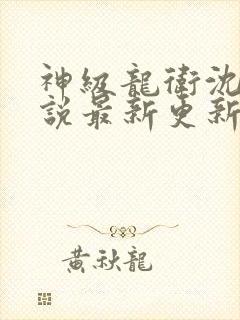 神級龍衛沈
說最新更新
黃秋龍